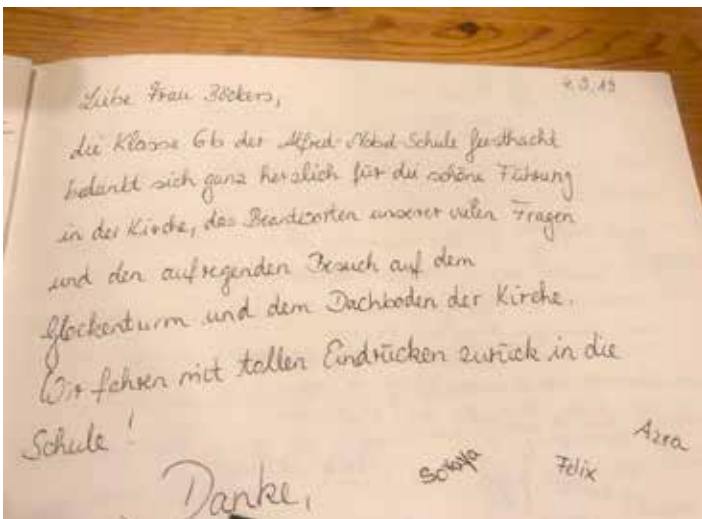 4.9.19
Liebe Frau Böckers,
die Klasse 6b der Alfred-Nobel-Schule Geesthacht
bedankt sich ganz herzlich für die schöne Führung
in der Kirche, das Beantworten unserer vielen Fragen
und den aufregenden Besuch auf dem
Glockenturm und dem Dachboden der Kirche.
Wir fahren mit tollen Eindrücken zurück in die
Schule!
Azra
Soraya Felix
Danke,